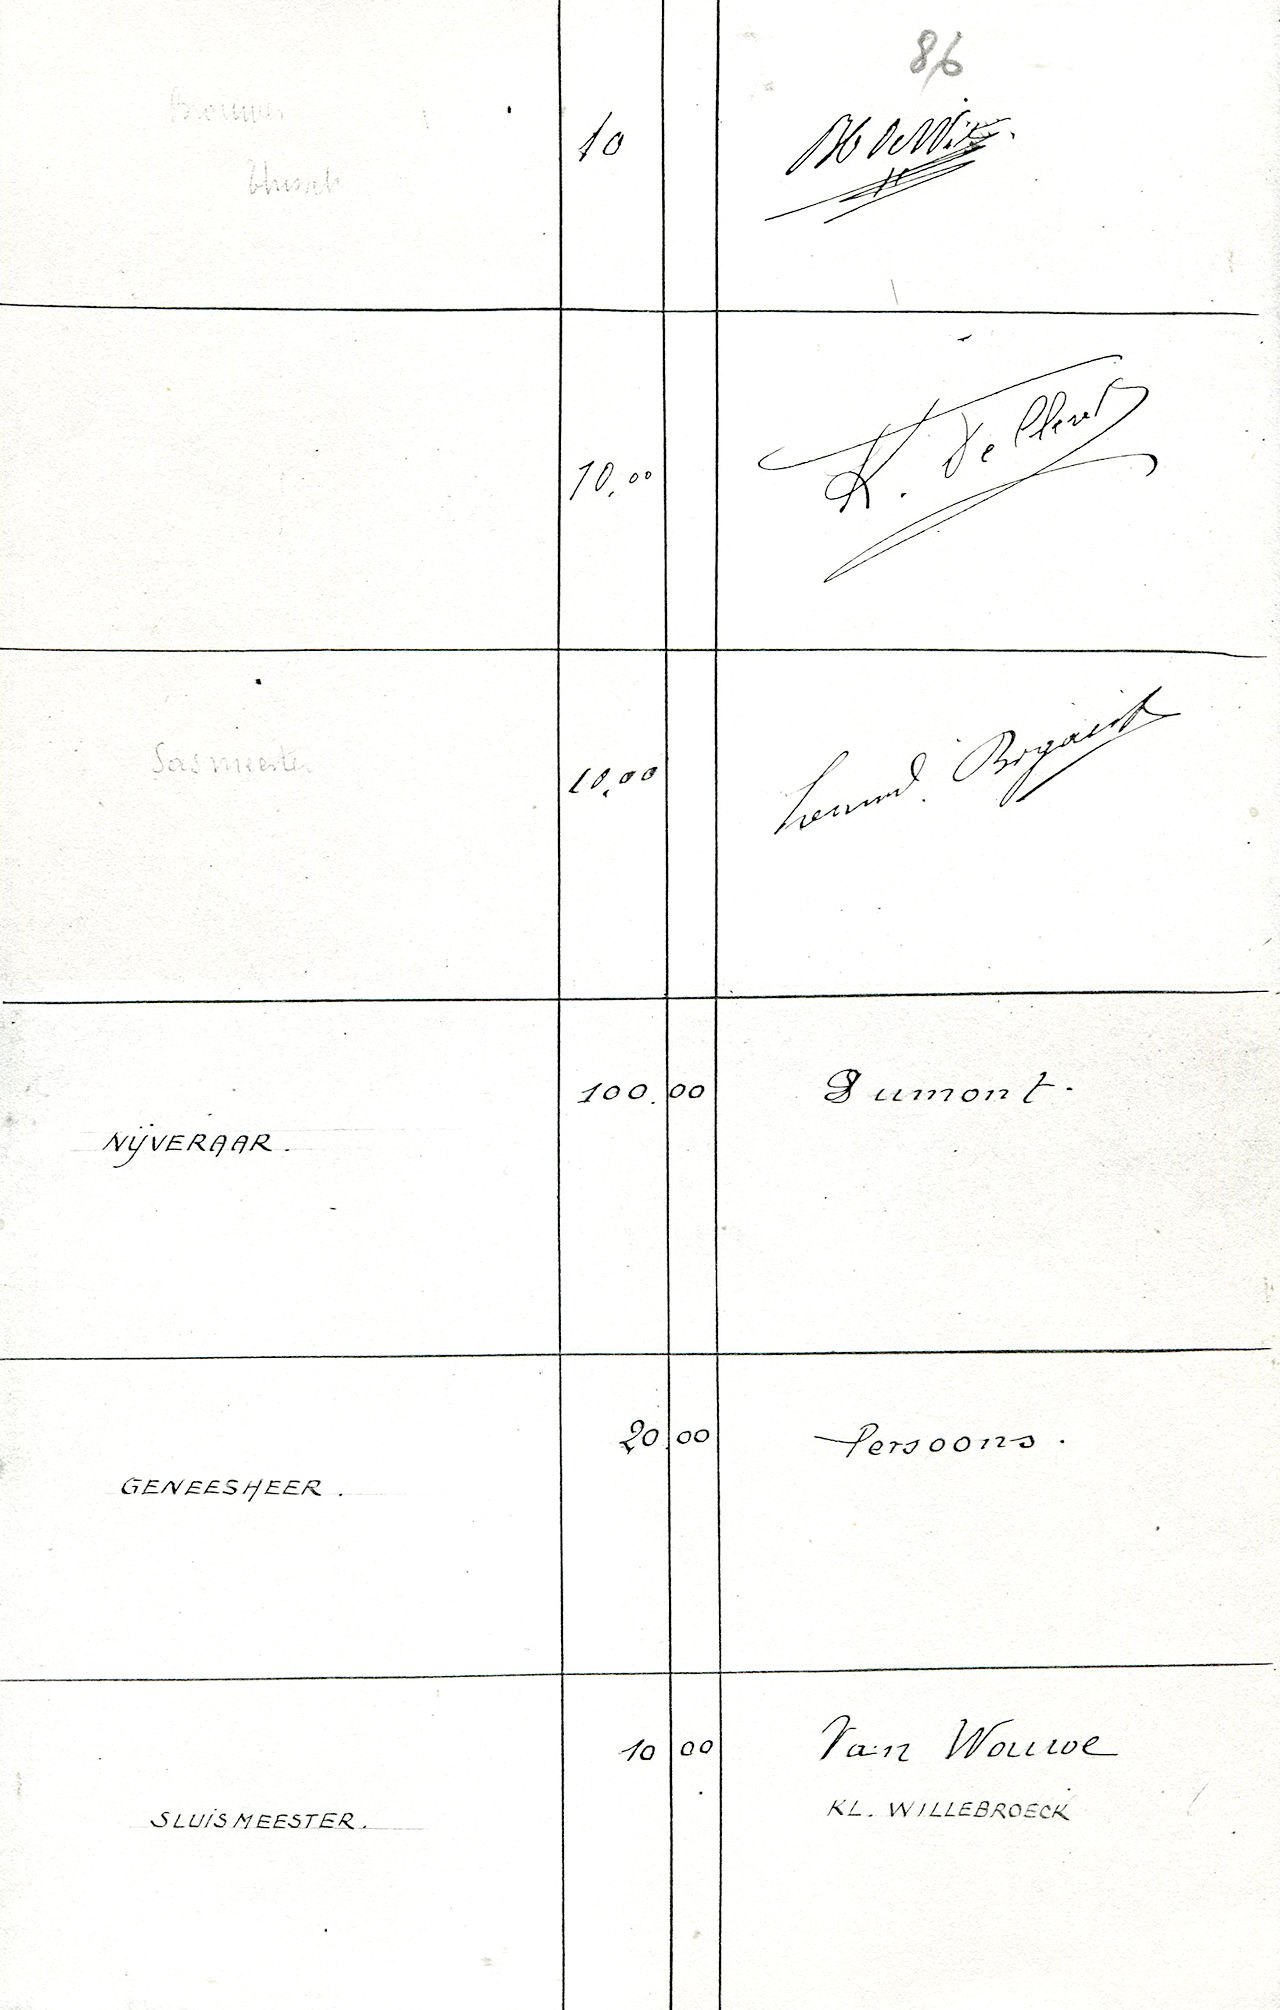 86
Brouwer
10
10.00
K. De Clerck
Sasmeester
10.00
Bogaert
100.00 Dumont.
NIJVERAAR.
20.00 Persoons.
GENEESHEER.
10 00 Van Wouwe
KL. WILLEBROECK
SLUISMEESTER.